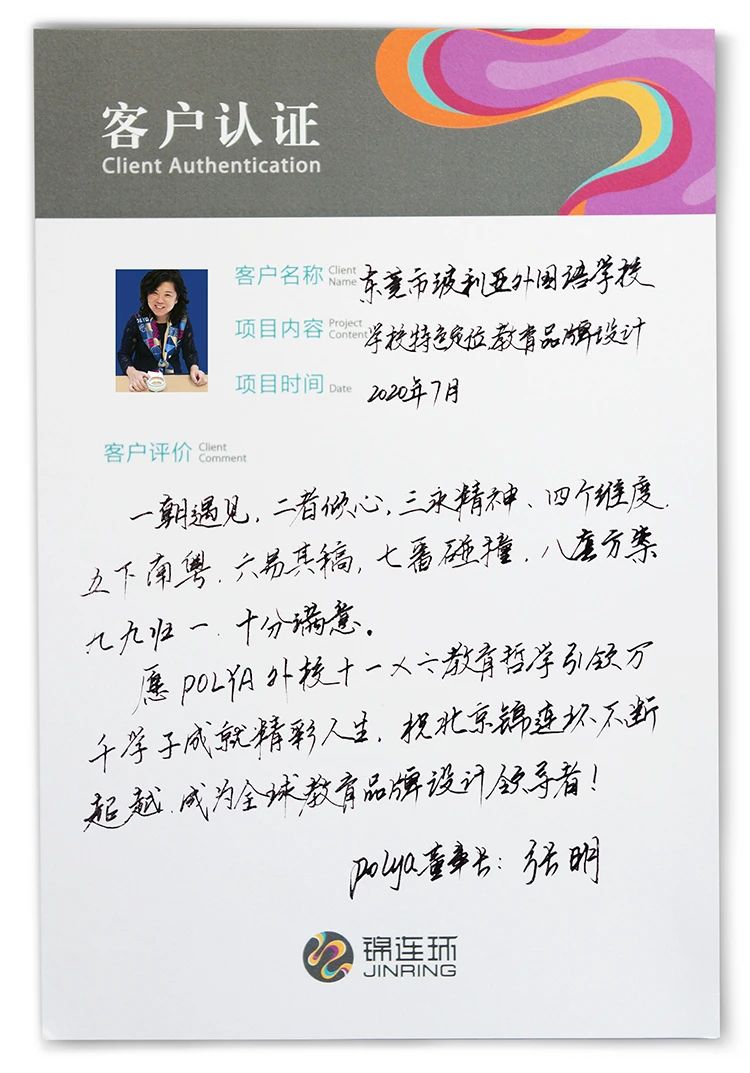 客户认证
Client Authentication
客户名称 Client Name 东莞市玻利亚外国语学校
项目内容 Project Content 学校特色定位教育品牌设计
项目时间 Date 2020年7月
客户评价 Client Comment
一朝遇见，二者倾心，三永精神、四个维度，
五下南粤，六易其稿，七番碰撞，八套方案
九九归一，十分满意。
愿POLYA外校十一乂六教育哲学引领万
千学子成就精彩人生，祝北京锦连环不断
起越，成为全球教育品牌设计领导者！
polya董事长：张明
锦连环
JINRING